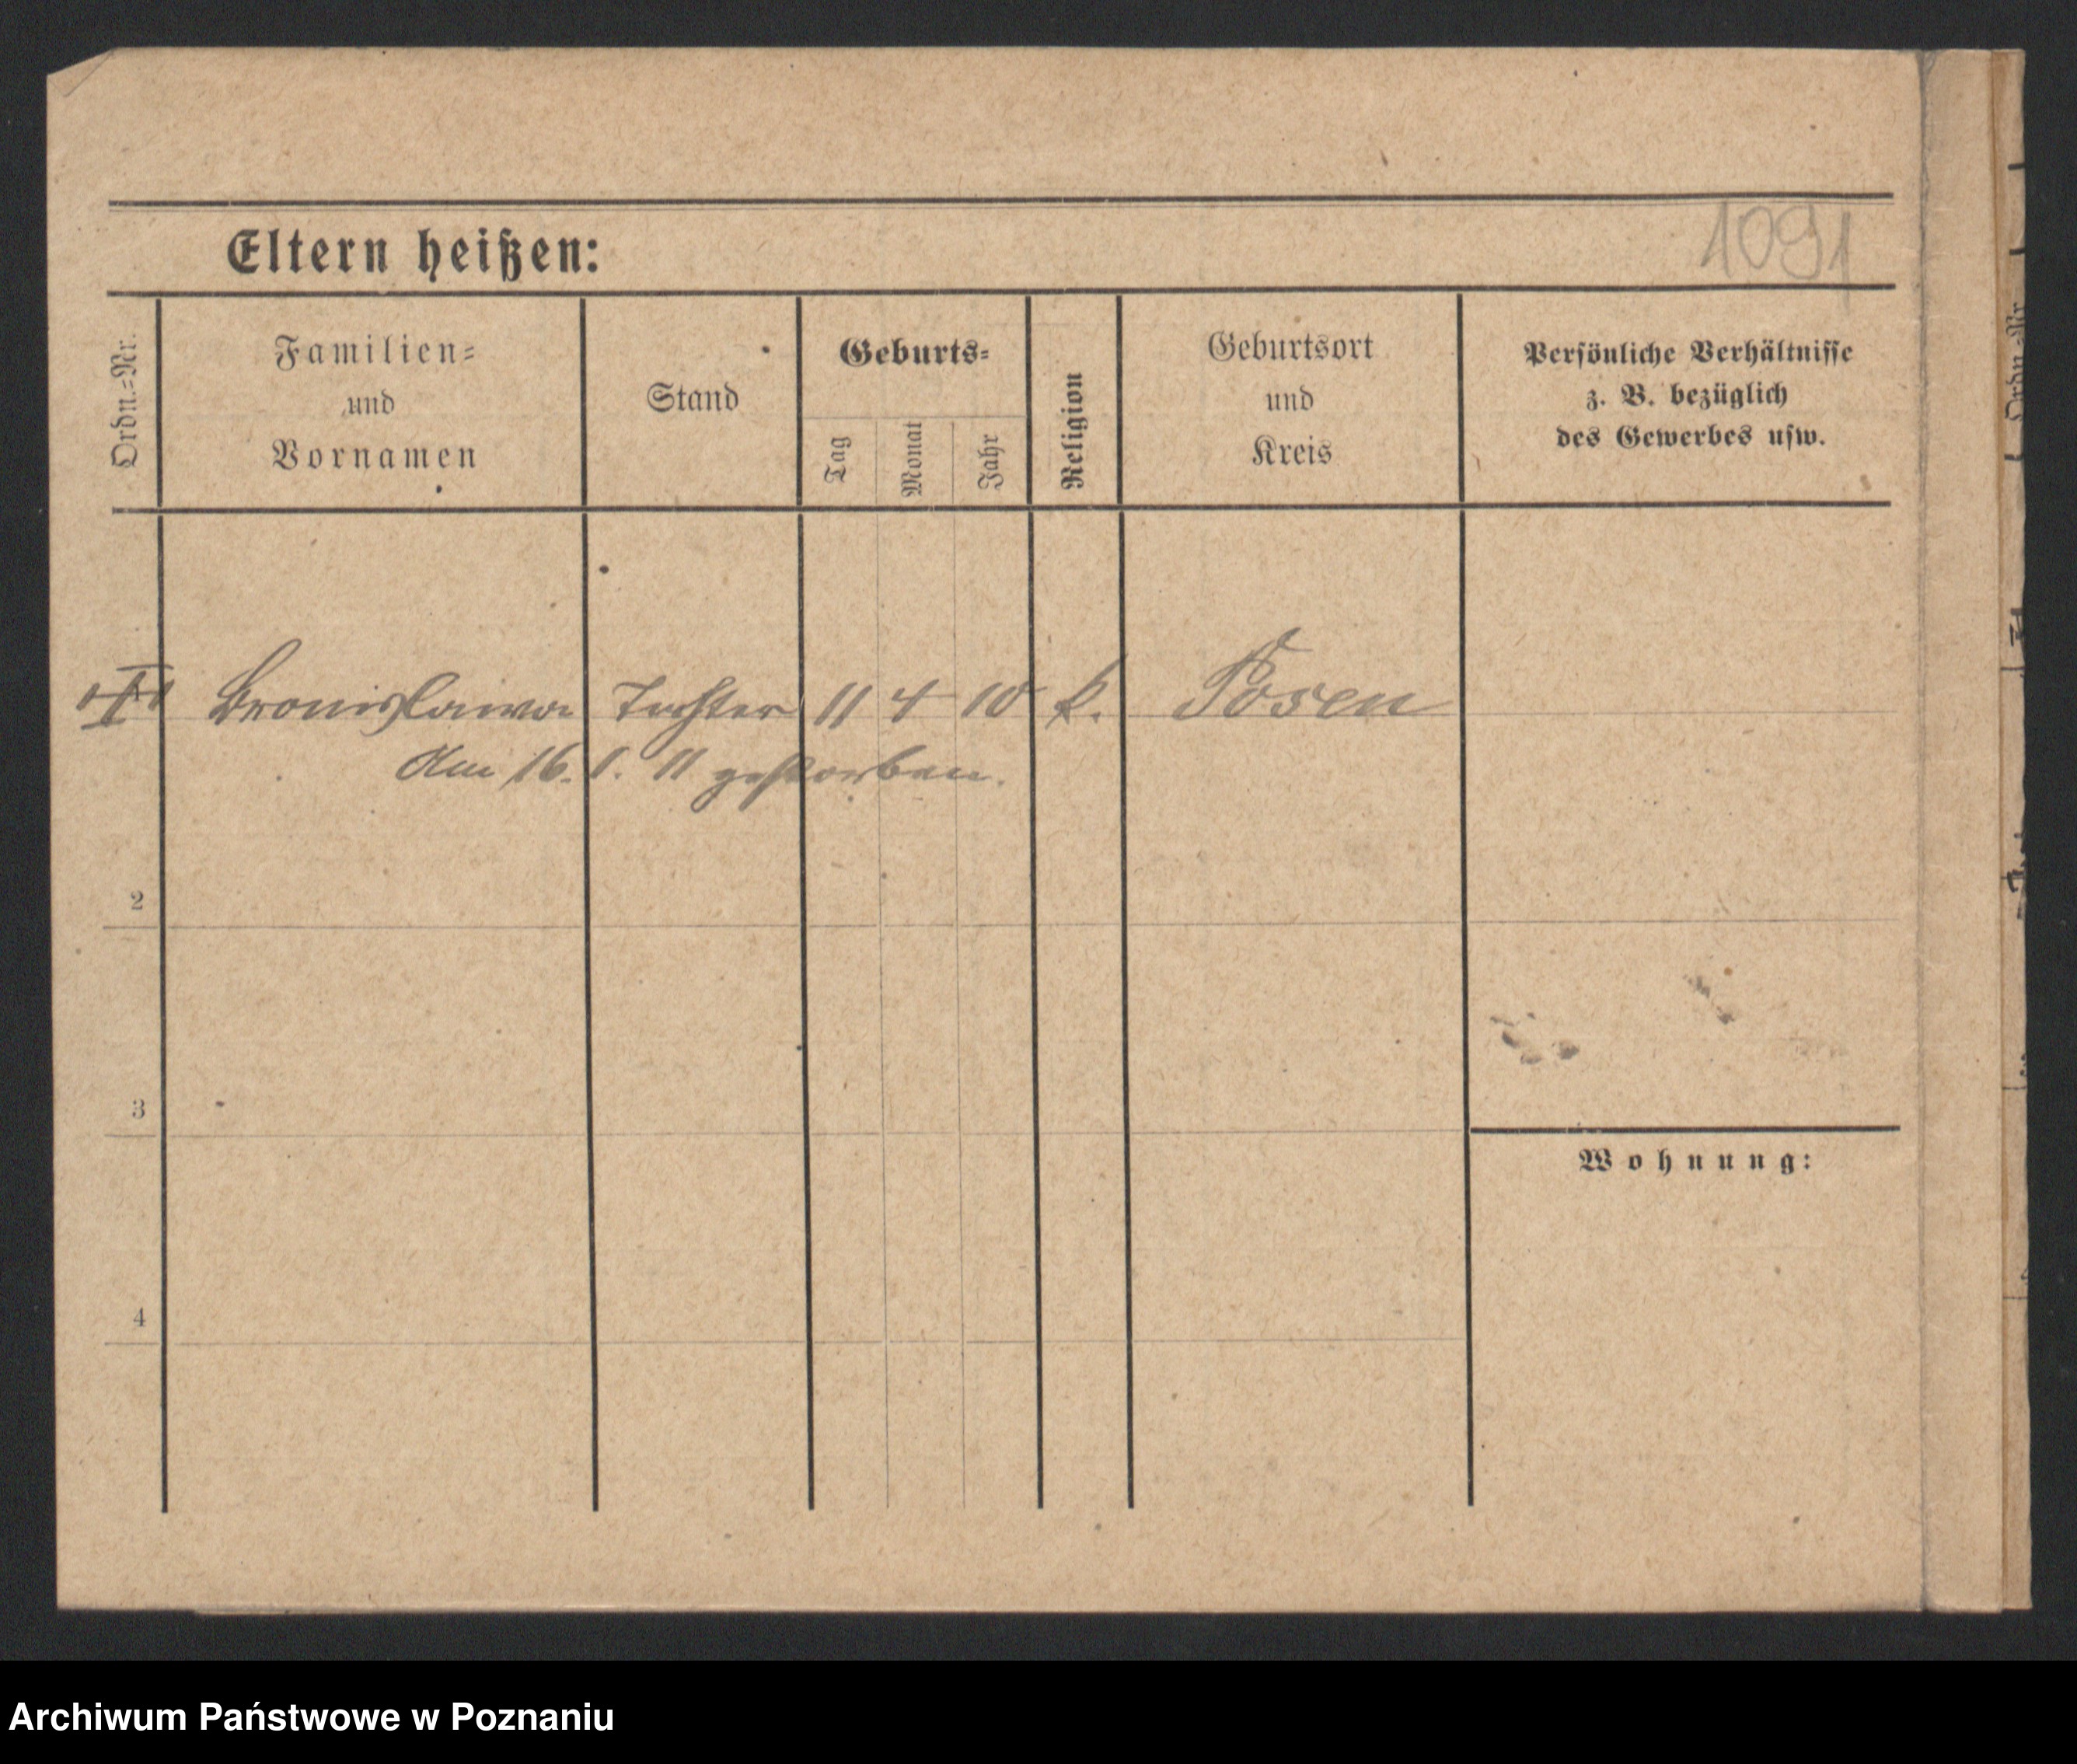 Eltern heißen:
1091
Ordn.=Nr.
Familien=
und
Vornamen
Stand
Geburts=
Tag
Monat
Jahr
Religion
Geburtsort
und
Kreis
Persönliche Verhältnisse
z. B. bezüglich
des Gewerbes usw.
Bronislawa Tochter 11 4 10 k. Posen
Am 16. 1. 11 gestorben.
2
3
Wohnung:
4
Ordn.=Nr.
Archiwum Państwowe w Poznaniu